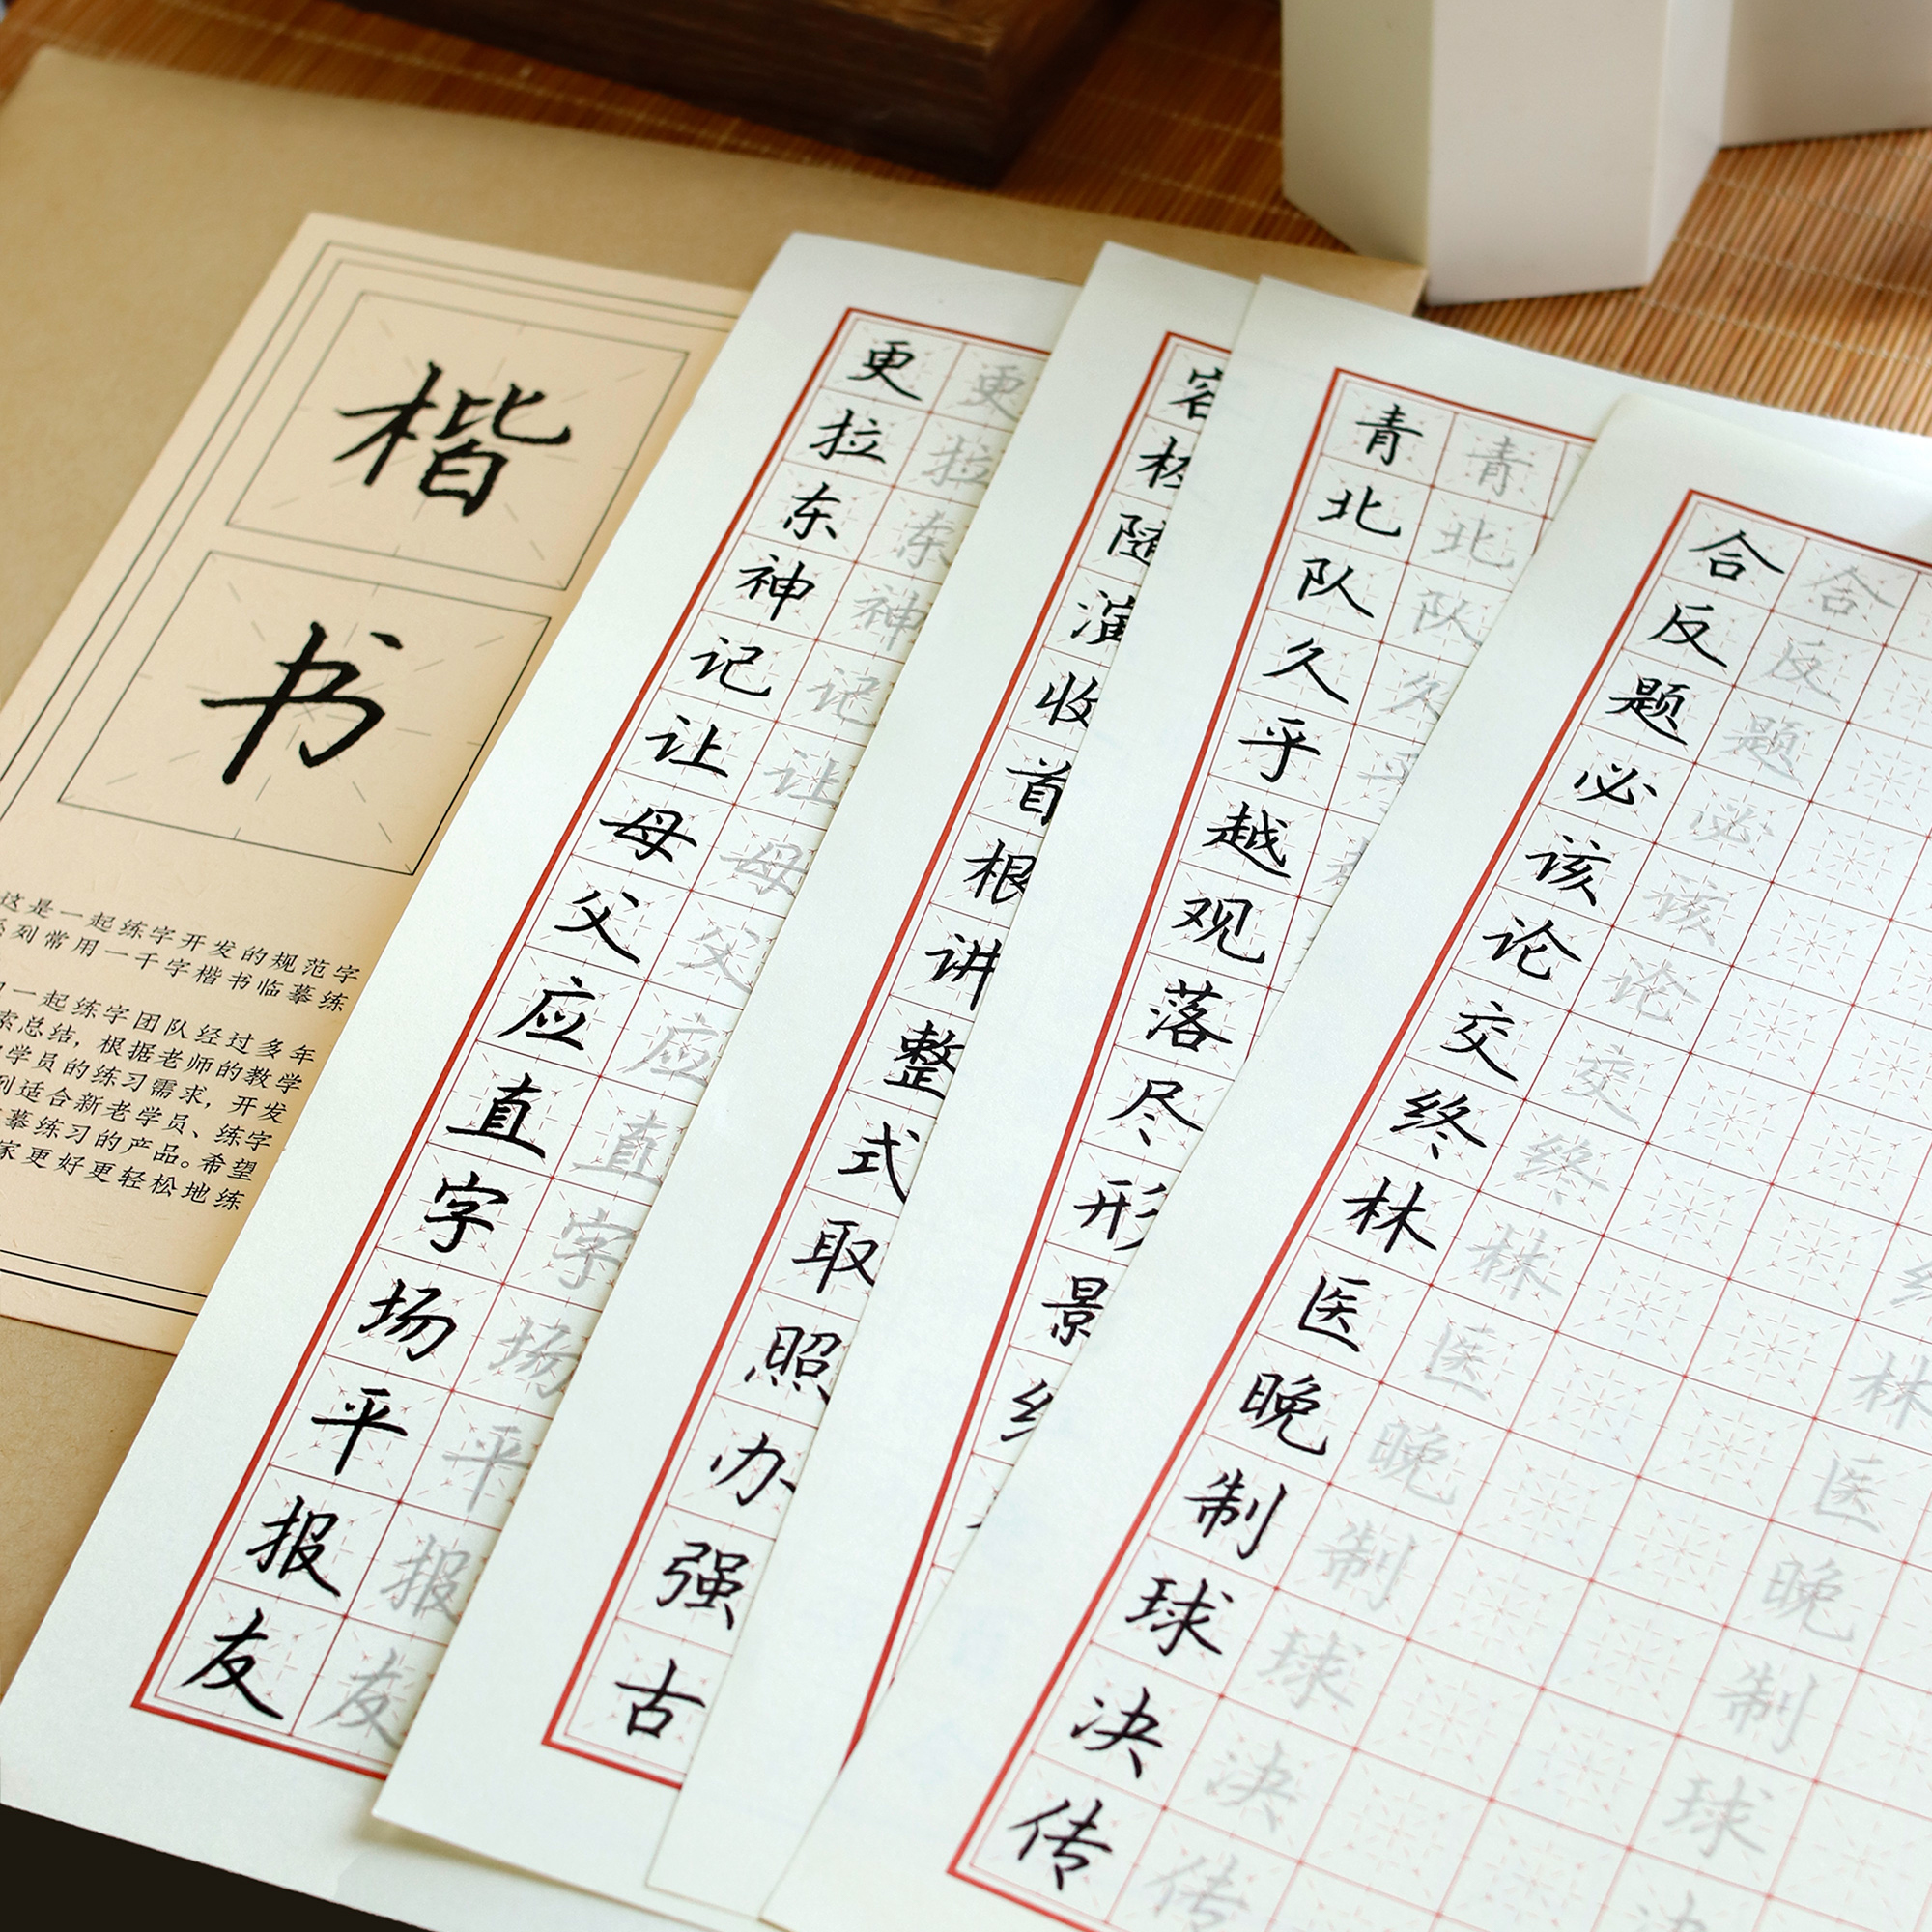 楷
书
这是一起练字开发的规范字
列常用一千字楷书临摹练
一起练字团队经过多年
索总结，根据老师的教学
学员的练习需求，开发
适合新老学员、练字
摹练习的产品。希望
家更好更轻松地练
更拉东神记让母父应直字场平报友
更拉东神记让母父应直字场平报友
容随演收首根讲整式取照办强古
青北队久乎越观落尽形景
青北队久乎
合反题必该论交终林医晚制球决传
合反题必该论交终林医晚制球决传
林医晚制球